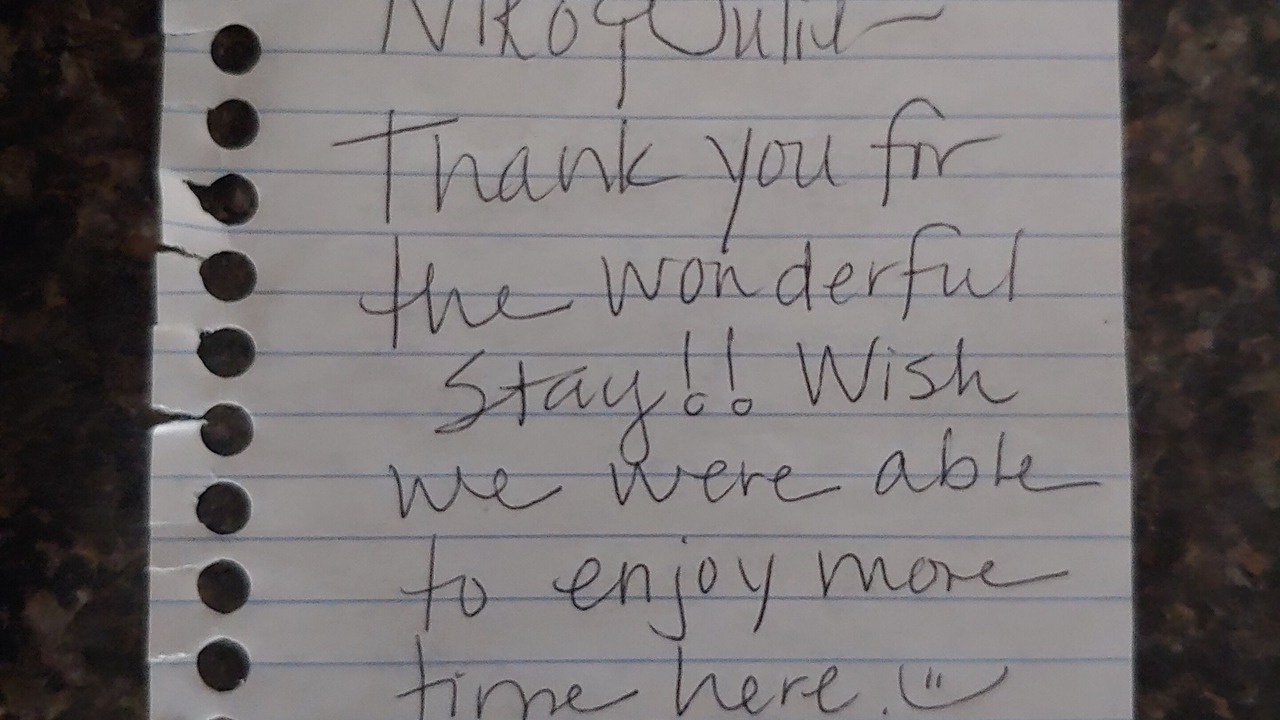 Niko & Julie -
Thank you for
the wonderful
stay!! Wish
we were able
to enjoy more
time here. :)